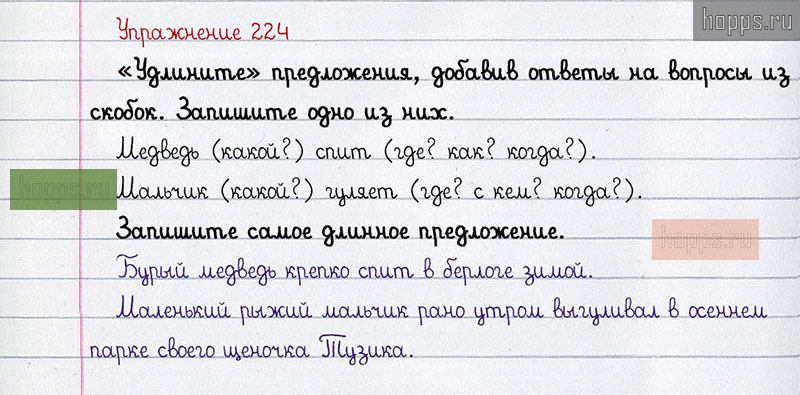 hopps.ru
Упражнение 224
«Удлините» предложения, добавив ответы на вопросы из
скобок. Запишите одно из них.
Медведь (какой?) спит (где? как? когда?).
hopps.ru
Мальчик (какой?) гуляет (где? с кем? когда?).
Запишите самое длинное предложение.
hopps.ru
Бурый медведь крепко спит в берлоге зимой.
Маленький рыжий мальчик рано утром выгуливал в осеннем
парке своего щеночка Тузика.